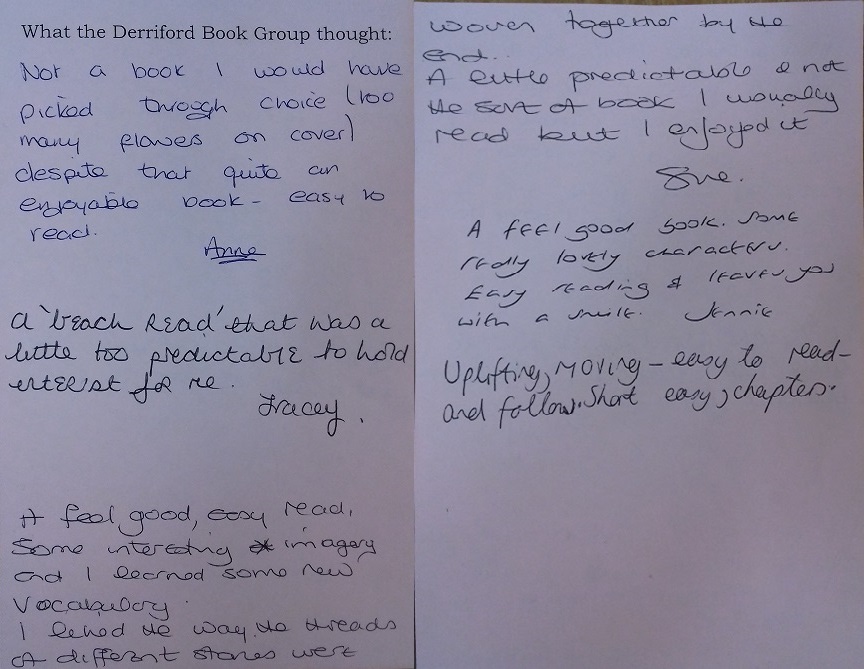 What the Derriford Book Group thought:
Not a book I would have
picked through choice (too
many flowes on cover)
despite that quite an
enjoyable book - easy to
read.
Anne
A 'beach Read' that was a
little too predictable to hold
interest for me.
Tracey.
A feel good, easy read,
Some interesting imagery
and I learned some new
vocabulary.
I liked the way the threads
of different stories were
woven together by the
end..
A little predictable & not
the sort of book I usually
read but I enjoyed it
Sue.
A feel good book. Some
really lovely characters.
Easy reading & leaves you
with a smile. Jennie
Uplifting, Moving - easy to read-
and follow. Short easy, chapters.